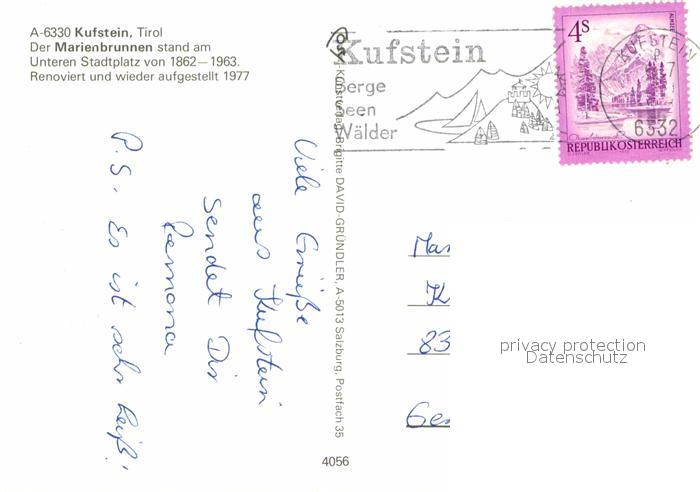 A-6330 Kufstein, Tirol
Der Marienbrunnen stand am
Unteren Stadtplatz von 1862—1963.
Renoviert und wieder aufgestellt 1977
Kufstein
Berge
Seen
Wälder
4S
REPUBLIK ÖSTERREICH
KUFSTEIN
6332
Viele Grüße
aus Kufstein
sendet Dir
Ramona
P.S. Es ist sehr heiß!
Brigitte DAVID-GRÜNDLER, A-5013 Salzburg, Postfach 35
Mar
K
83
Ger
privacy protection
Datenschutz
4056